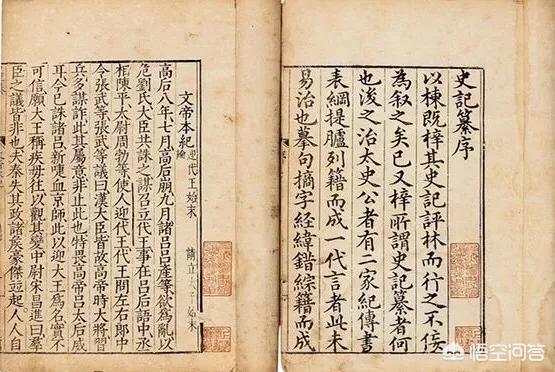 史記纂序
以棟既梓其史記評林而行之不佞
為叙之矣已又梓所謂史記纂者何
也浚之治太史公者有二家紀傳書
表綱提臚列籍而成一代言者此未
易治也摹句摘字經緯錯綜籍而成
文帝本紀 迎代王始末 請立
高后八年七月高后崩九月諸呂呂產等欲為亂以
危劉氏大臣共誅之謀召立代王事在呂后語中丞
相陳平太尉周勃等使人迎代王代王問左右郎中
令張武等張武等議曰漢大臣皆故高帝時大將習
兵多謀詐此其屬意非止此也特畏高帝呂太后威
耳今已誅諸呂新喋血京師此以迎大王為名實不
可信願大王稱疾毋往以觀其變中尉宋昌進曰羣
臣之議皆非也夫秦失其政諸侯豪傑竝起人人自
悟空问答